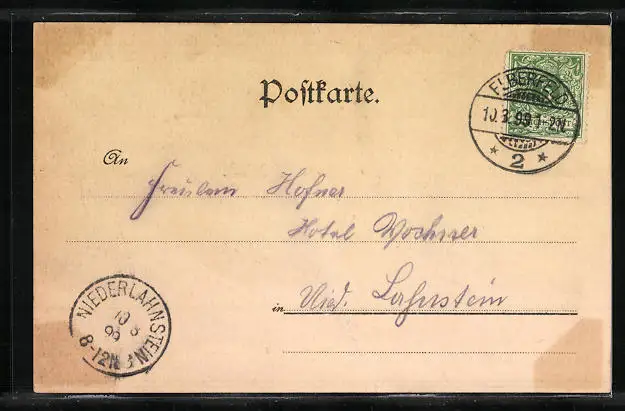 Postkarte.
ELBERFELD
10.3.99.1-2N.
* 2 *
An
Fräulein Hofner
Hotel
in Nied. Lahnstein
NIEDERLAHNSTEIN
10 3
99
8-12N